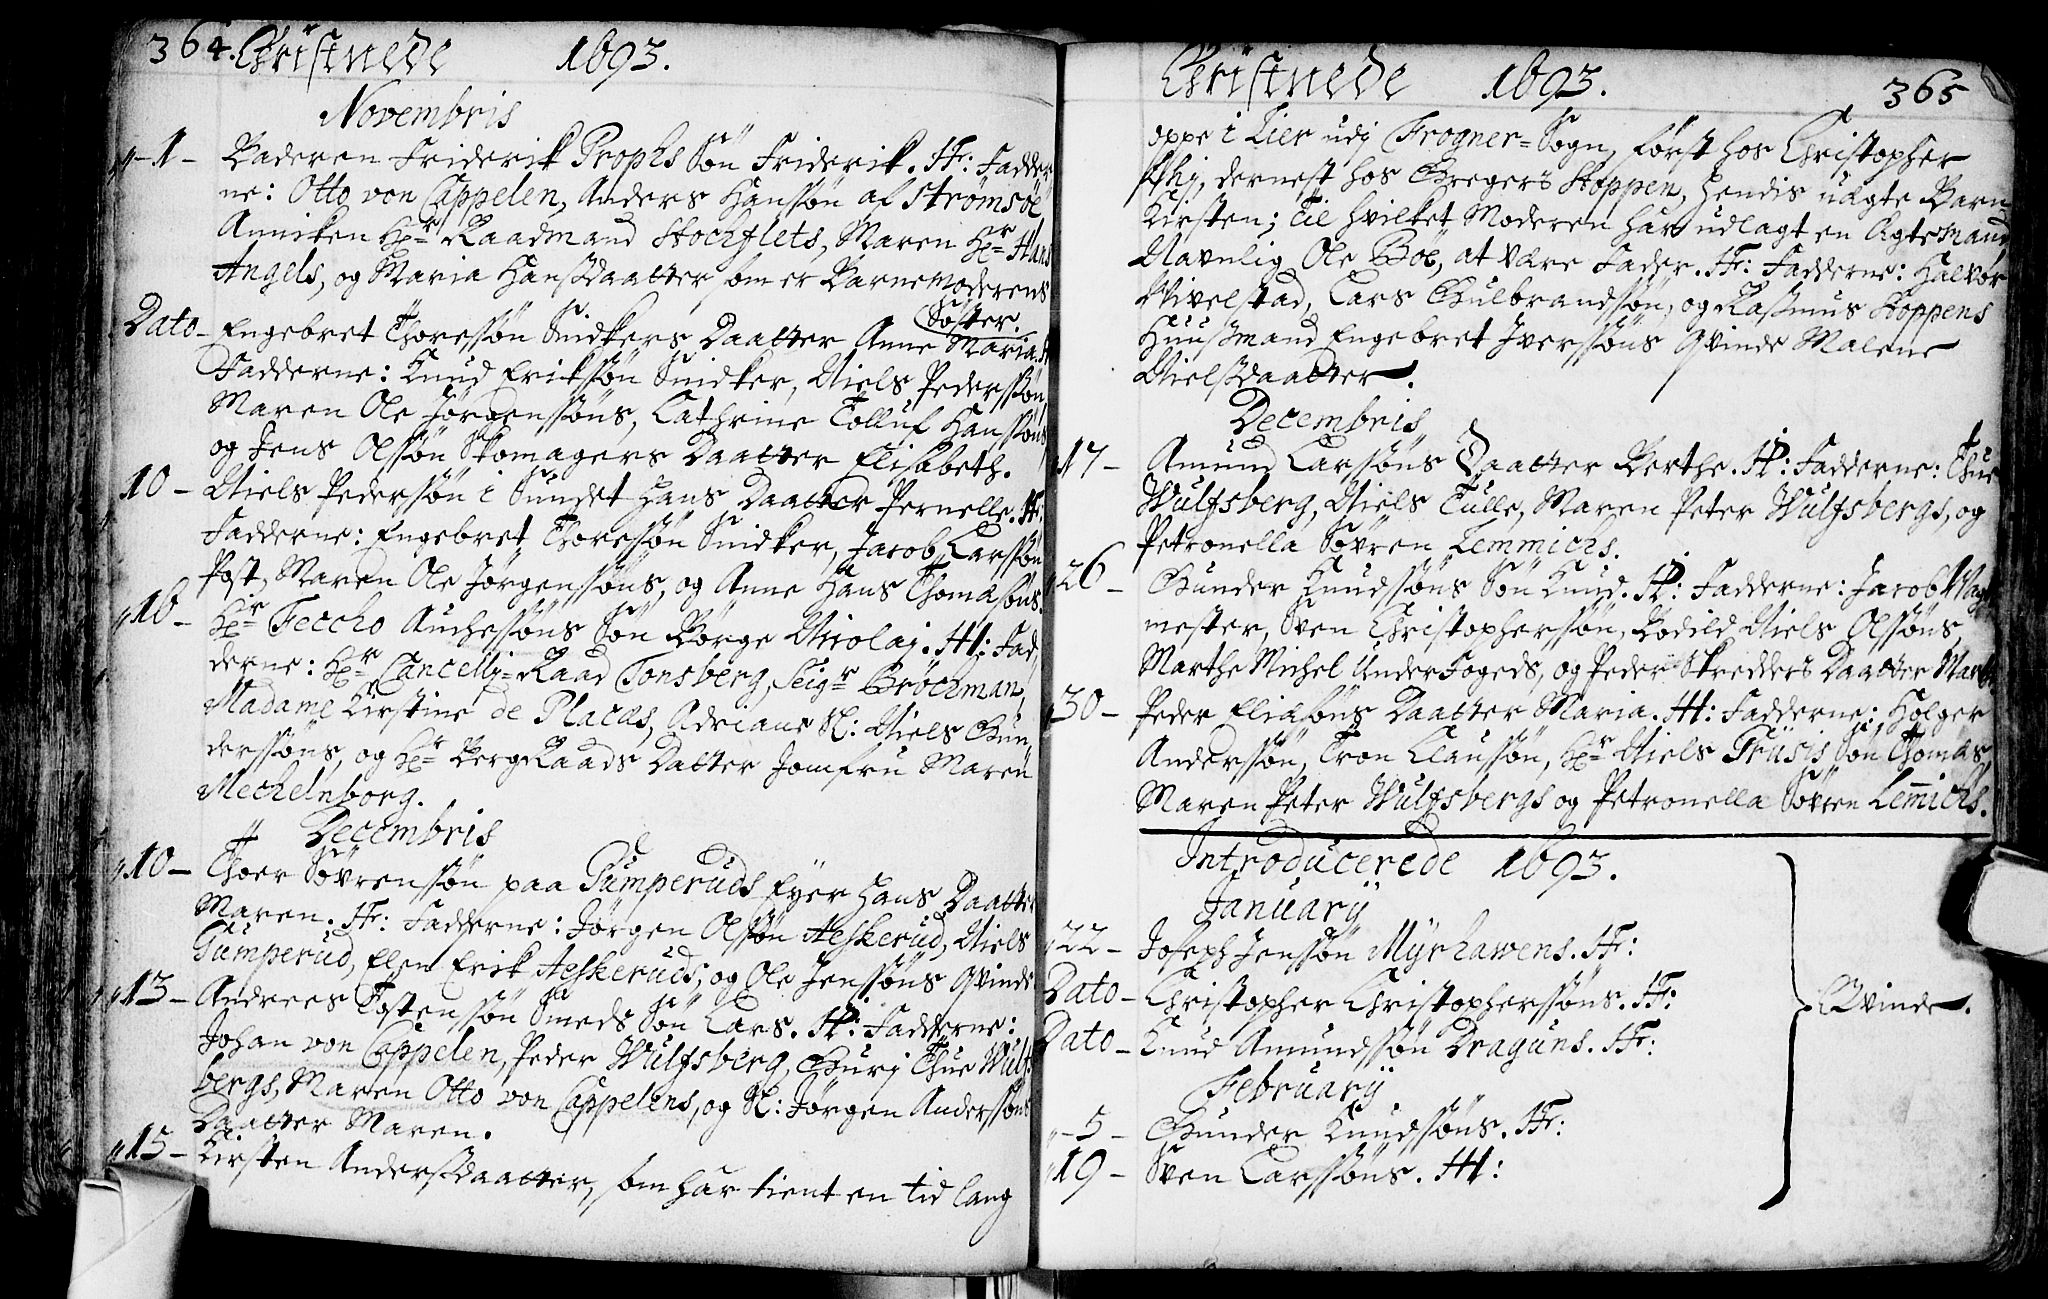 364. Christnede 1693.
Novembris
"-1- Baderen Friderik Prophs Sön Friderik. Hr: Fadder
ne: Otto von Cappelen, Anders Hansön af Strömsöe,
Anniken Hr Raadmand Stochflets, Maren Hr Hans
Angels, og Maria Hansdaatter som er Barnemoderens
Söster.
Dato- Engebret Thoresön Snidkers Daatter Anne Maria.
Fadderne: Knud Eriksön Snidker, Niels Pederssön,
Maren Ole Jörgenssöns, Cathrine Tolluf Hanssöns
og Jens Olssön Skomagers Daatter Elisabeth.
10 - Niels Pederssön i Sundet Hans Daatter Pernelle. Hr.
Fadderne: Engebret Thoressön Snidker, Jacob Larssön
Post, Maren Ole Jörgenssöns, og Anne Hans Thomasöns.
"16- Hr Feccho Auchessöns Sön Börge Nicolai. H: Fad
derne: Hr Cancellj=Raad Tonsberg, Seigr Bröchman,
Madame Kirstine de Placas, Adriane Sl: Niels Gun
derssöns, og Hr BergRaads Datter Jomfru Maren
Mechelnborg.
Decembris
"10- Thoer Sövrenssön paa Gumperuds Eyer Hans Daatter
Maren. Hr: Fadderne: Jörgen Olssön Aeskerud, Niels
Gumperud, Elen Erik Aeskeruds, og Ole Jenssöns Qvinde
"13- Andrees Tostenssön Smeds Sön Lars. H: Fadderne:
Johan von Cappelen, Peder Wulfsberg, Gurj Thue Wulfs-
bergs, Maren Otto von Cappelens, og Sl: Jörgen Anderssöns
Daatter Maren.
"15- Kirsten Andersdaatter, som har tient en tid lang
Christnede 1693. 365
oppe i Lier udj Frogner=Sogn, först hos Christopher
dernest hos Gregers Stoppen, hendis uægte Barn
Kirsten; til hvilket Moderen har udlagt en Egtemand
Navnlig Ole Böe, at være Fader. Hr: Fadderne: Halvor
Nivelstad, Lars Gulbrandssön, og Rasmus Stoppens
Huusmand Engebret Iverssöns Qvinde Malene
Nielsdaatter.
Decembris
17- Amund Larssöns Daatter Berthe. H: Fadderne: Thue
Wulfsberg, Niels Tulle, Maren Peter Wulfsbergs, og
Petronella Sövren Lemmichs.
26- Gunder Knudssöns Sön Knud. H: Fadderne: Jacob Wagt
mester, Sven Christopherssön, Bodild Niels Olssöns,
Marthe Michel UnderFogeds, og Peder Skredders Daatter Marthe
30- Peder Eliasöns Daatter Maria. H: Fadderne: Holger
Anderssön, Tron Claussön, Hr Niels Früsis Sön Thomas,
Maren Peter Wulfsbergs og Petronella Sövren Lemichs.
Introducerede 1693.
Januarÿ
"22- Joseph Jenssön Mÿrhawens. Hr:
Dato- Christopher Christopherssöns. Hr:
Qvinde.
Dato- Knud Amundssön Draguns. Hr:
Februarÿ
"-5- Gunder Knudssöns. Hr:
"19- Sven Larssöns. H: